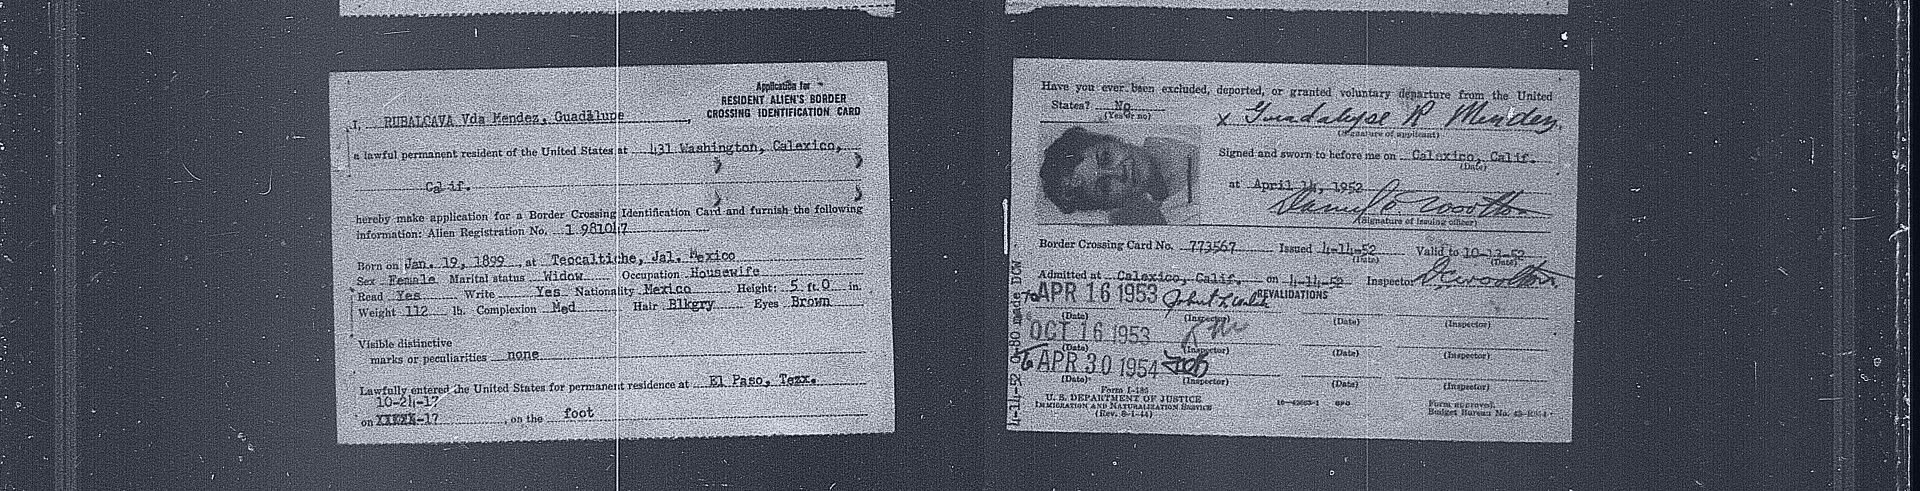 Application for
RESIDENT ALIEN'S BORDER
CROSSING IDENTIFICATION CARD
I, RUBALCAVA Vda Mendez, Guadalupe,
a lawful permanent resident of the United States at 431 Washington, Calexico,
Calif.
hereby make application for a Border Crossing Identification Card and furnish the following
information: Alien Registration No. 1 981047
Born on Jan. 19, 1899, at Teocaltiche, Jal. Mexico
Sex Female Marital status Widow Occupation Housewife
Read Yes Write Yes Nationality Mexico Height: 5 ft. 0 in.
Weight 112 lb. Complexion Med Hair Blkgry Eyes Brown
Visible distinctive
marks or peculiarities none
Lawfully entered the United States for permanent residence at El Paso, Texx.
10-24-17
on -17, on the foot
Have you ever been excluded, deported, or granted voluntary departure from the United
States? No
(Yes or no)
x Guadalupe R Mendez
(Signature of applicant)
Signed and sworn to before me on Calexico, Calif.
(Date)
at April 14, 1952
(Signature of issuing officer)
Border Crossing Card No. 773567 Issued 4-14-52 Valid to 10-13-52
(Date) (Date)
Admitted at Calexico, Calif. on 4-14-52 Inspector D.C. Wootton
(Date)
REVALIDATIONS
To APR 16 1953
(Date) (Inspector) (Date) (Inspector)
OCT 16 1953
(Date) (Inspector) (Date) (Inspector)
To APR 30 1954
(Date) (Inspector) (Date) (Inspector)
Form I-180
U. S. DEPARTMENT OF JUSTICE
IMMIGRATION AND NATURALIZATION SERVICE
(Rev. 8-1-44)
16-42663-1 GPO
Form approved.
Budget Bureau No.
4-14-52 made DCW